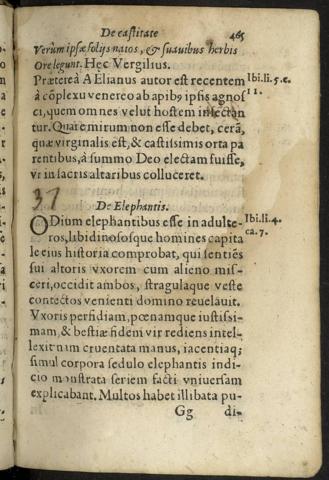 De castitate 465
Verùm ipsæ folijs natos, & suauibus herbis
Ore legunt. Hęc Vergilius.
Prætereà AElianus autor est recentem Ibi.li.5.c.
à cōplexu venereo ab apibꝰ ipsis agnos 11.
ci, quem omnes velut hostem insectan
tur. Quare mirum non esse debet, cerā,
quæ virginalis est, & castissimis orta pa
rentibus, à summo Deo electam fuisse,
vt in sacris altaribus colluceret.
37
De Elephantis.
ODium elephantibus esse in adulte- Ibi.li.4.
ros, libidinososque homines capita ca.7.
le eius historia comprobat, qui sentiēs
sui altoris vxorem cum alieno mis-
ceri, occidit ambos, stragulaque veste
contectos venienti domino reuelauit.
Vxoris perfidiam, pœnamque iustissi-
mam, & bestiæ fidem vir rediens intel-
lexit nam cruentata manus, iacentiaq;
simul corpora sedulo elephantis indi-
cio monstrata seriem facti vniuersam
explicabant. Multos habet illibata pu-
Gg di-